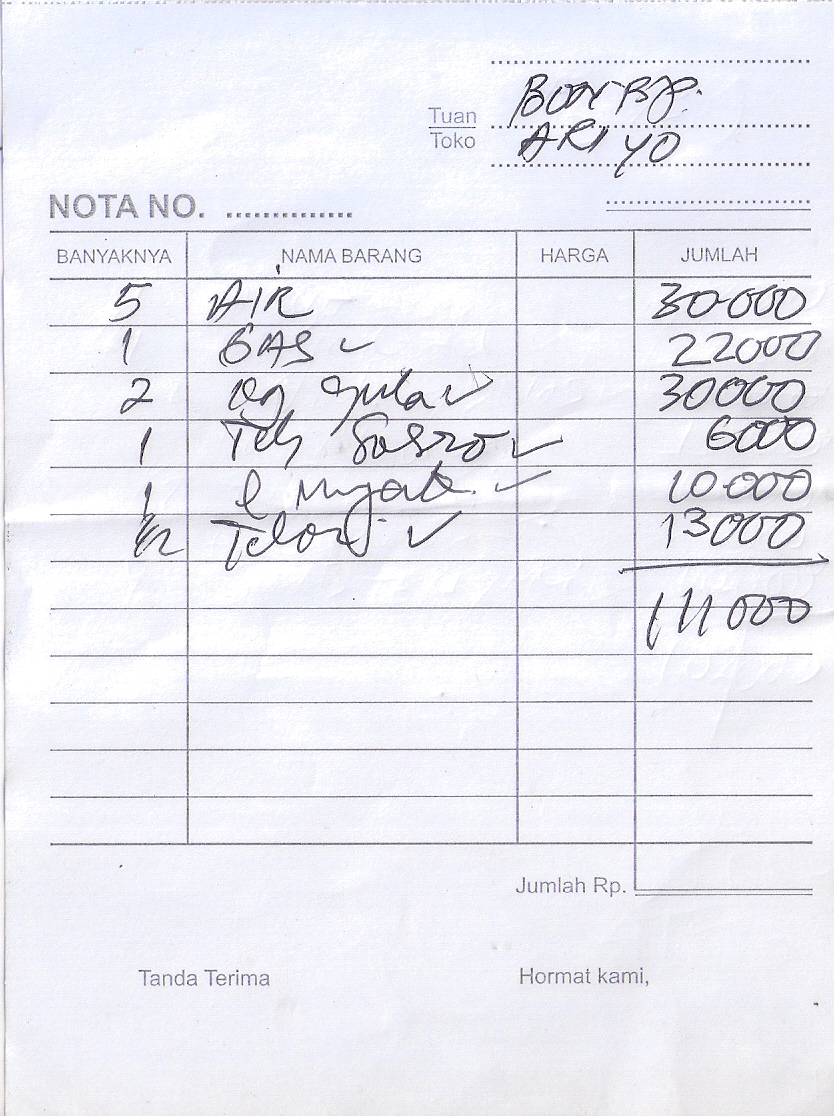 Tuan
Toko
BON BP.
ARIYO
NOTA NO. ..............
BANYAKNYA NAMA BARANG HARGA JUMLAH
5 AIR 30000
1 GAS ✓ 22000
2 kg gula ✓ 30000
1 Teh Sosro ✓ 6000
1 ✓ 10000
1/2 Telor ✓ 13000
111000
Jumlah Rp.
Tanda Terima Hormat kami,